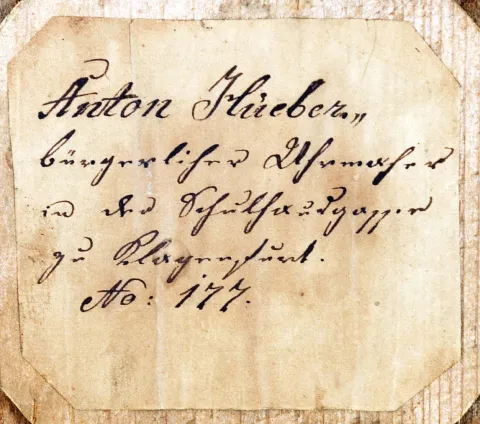 Anton Hüeber„
bürgerlicher Uhrmacher
in der Schulhausgasse
zu Klagenfurt.
No: 177.